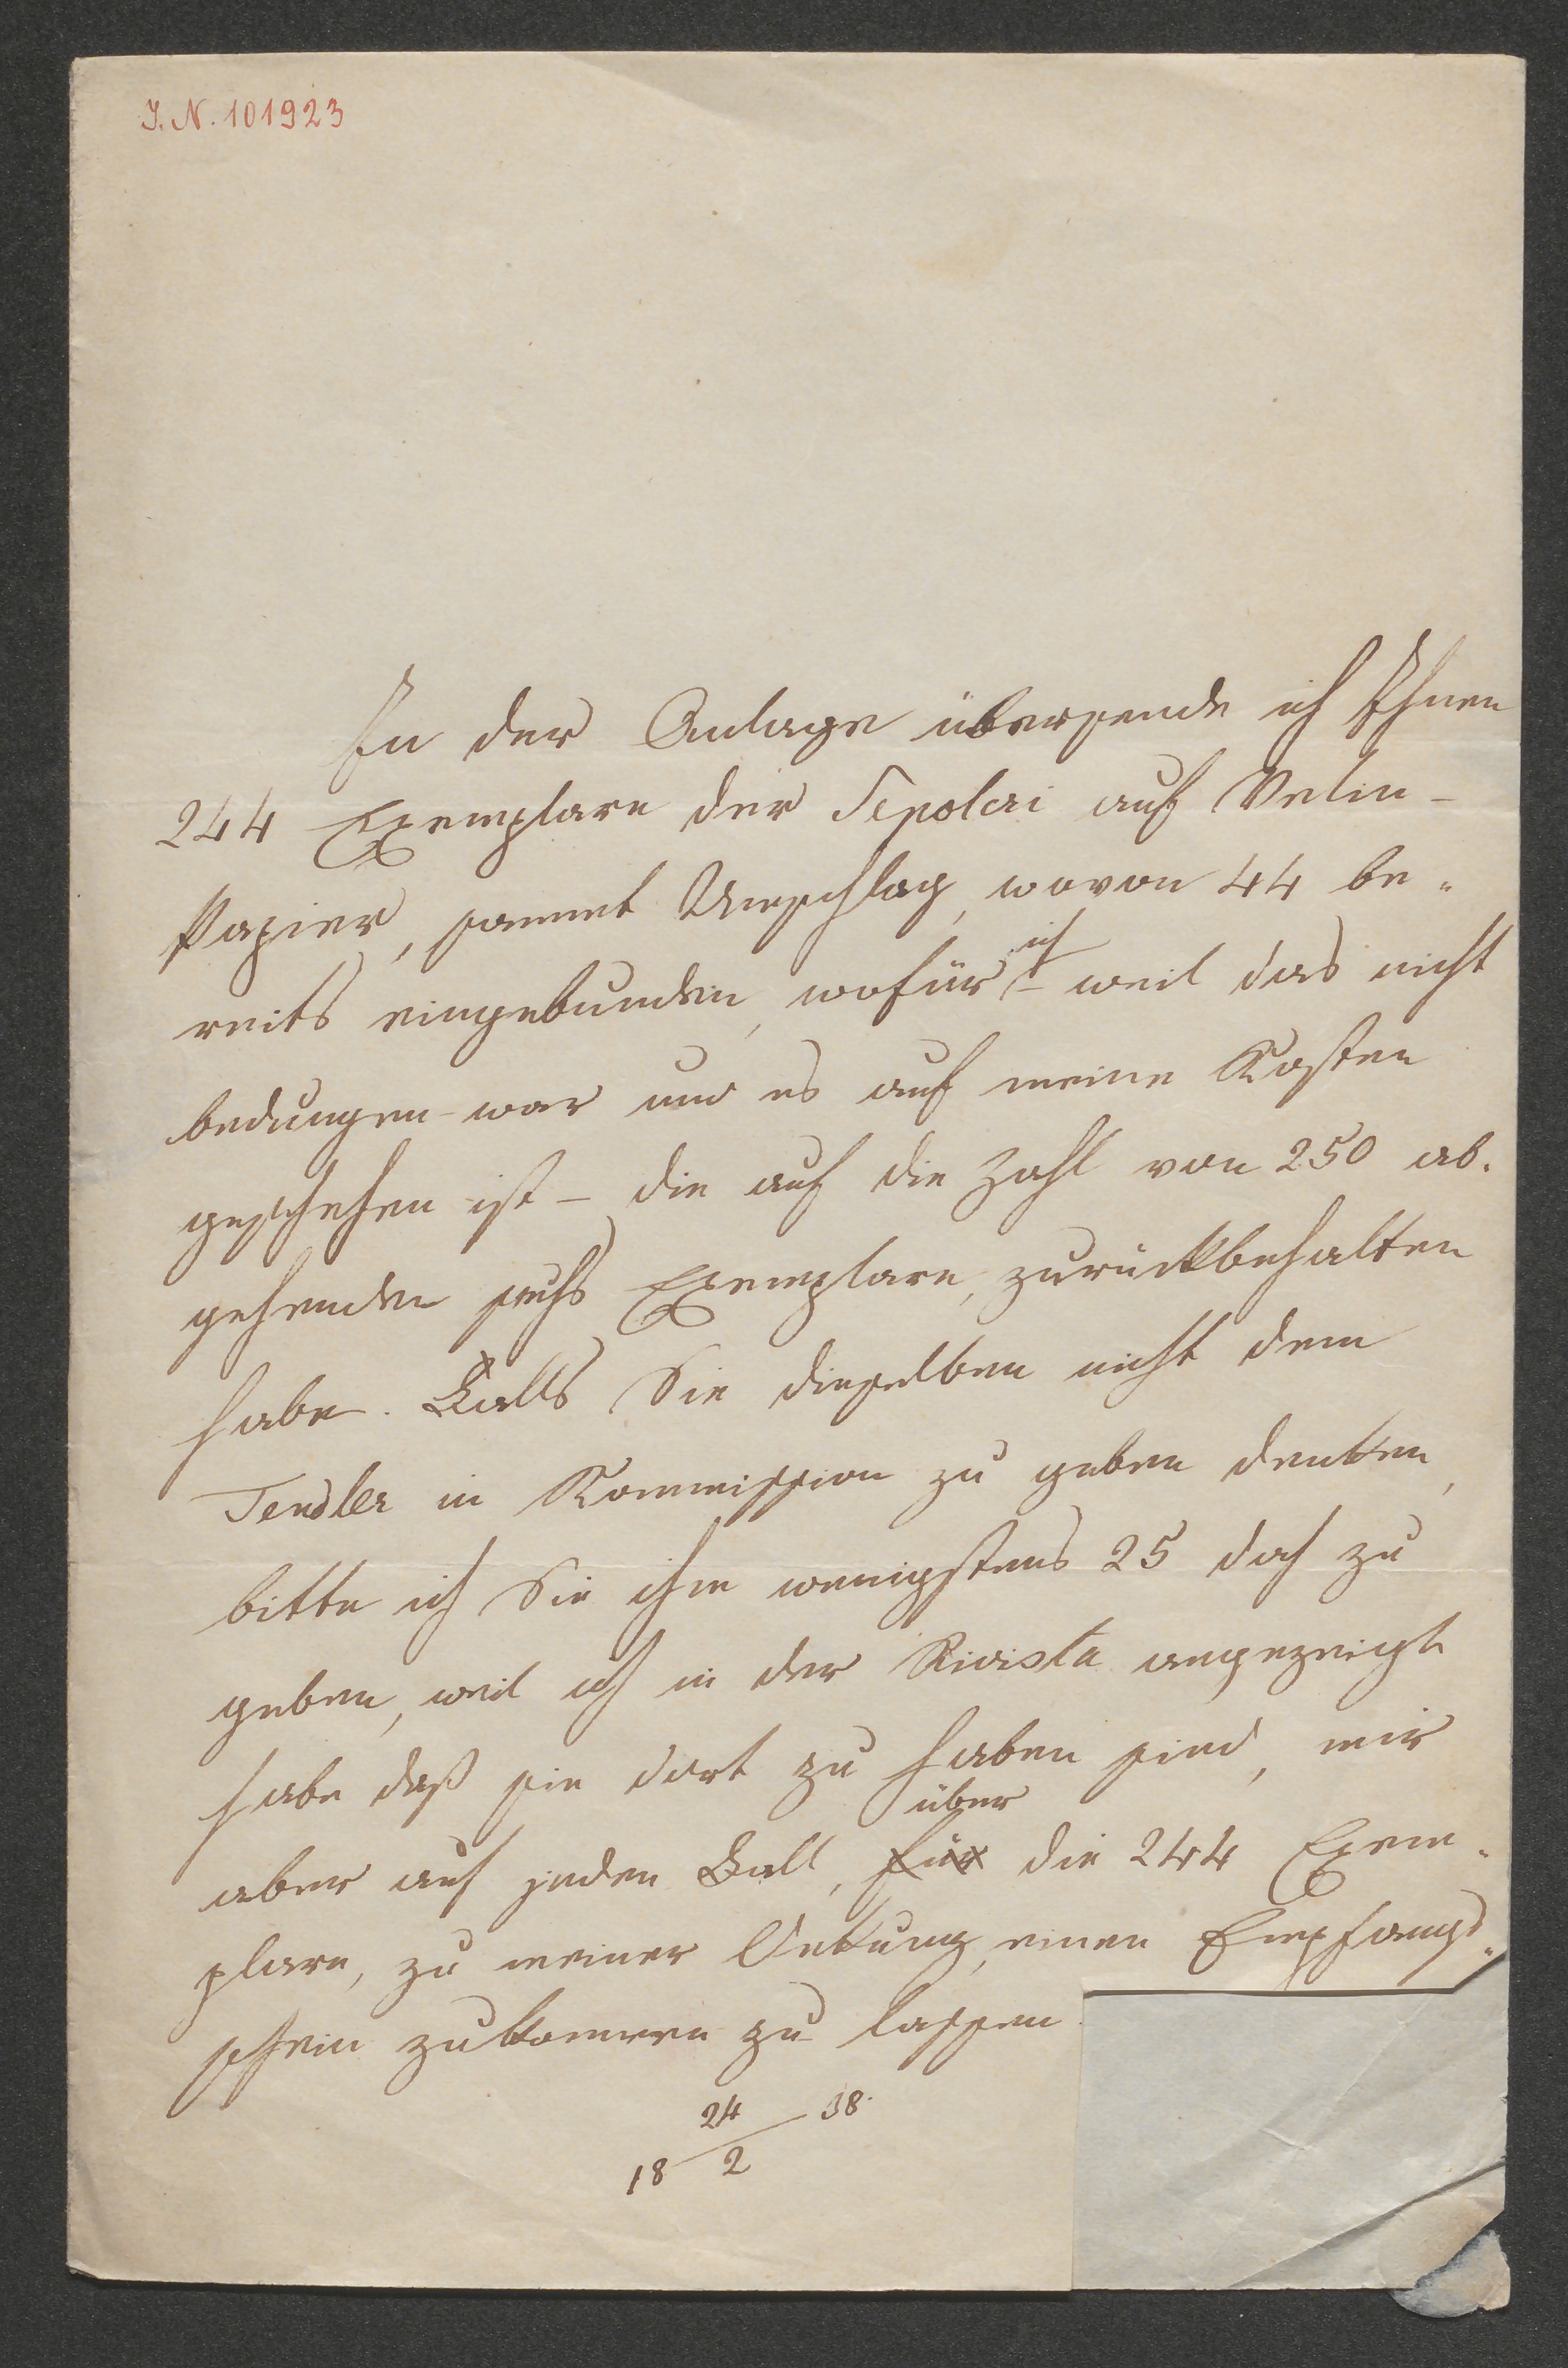 I. N. 101923
In der Anlage übersende ich Ihnen
244 Exemplare der Sepolcri auf Velin-
Papier, sammt Umschlag, wovon 44 be-
reits eingebunden, wofür ich – weil das nicht
bedungen war und es auf meine Kosten
geschehen ist – die auf die Zahl von 250 ab-
gehenden sechs Exemplare, zurückbehalten
habe. Falls Sie dieselben nicht dem
Tendler in Kommission zu geben denken,
bitte ich Sie ihm wenigstens 25 doch zu
geben, weil ich in der Rivista angezeigt
habe daß sie dort zu haben sind, mir
aber auf jeden Fall, für über die 244 Exem-
plare, zu meiner Deckung, einen Empfangs-
schein zukommen zu lassen.
18 24/2 38.